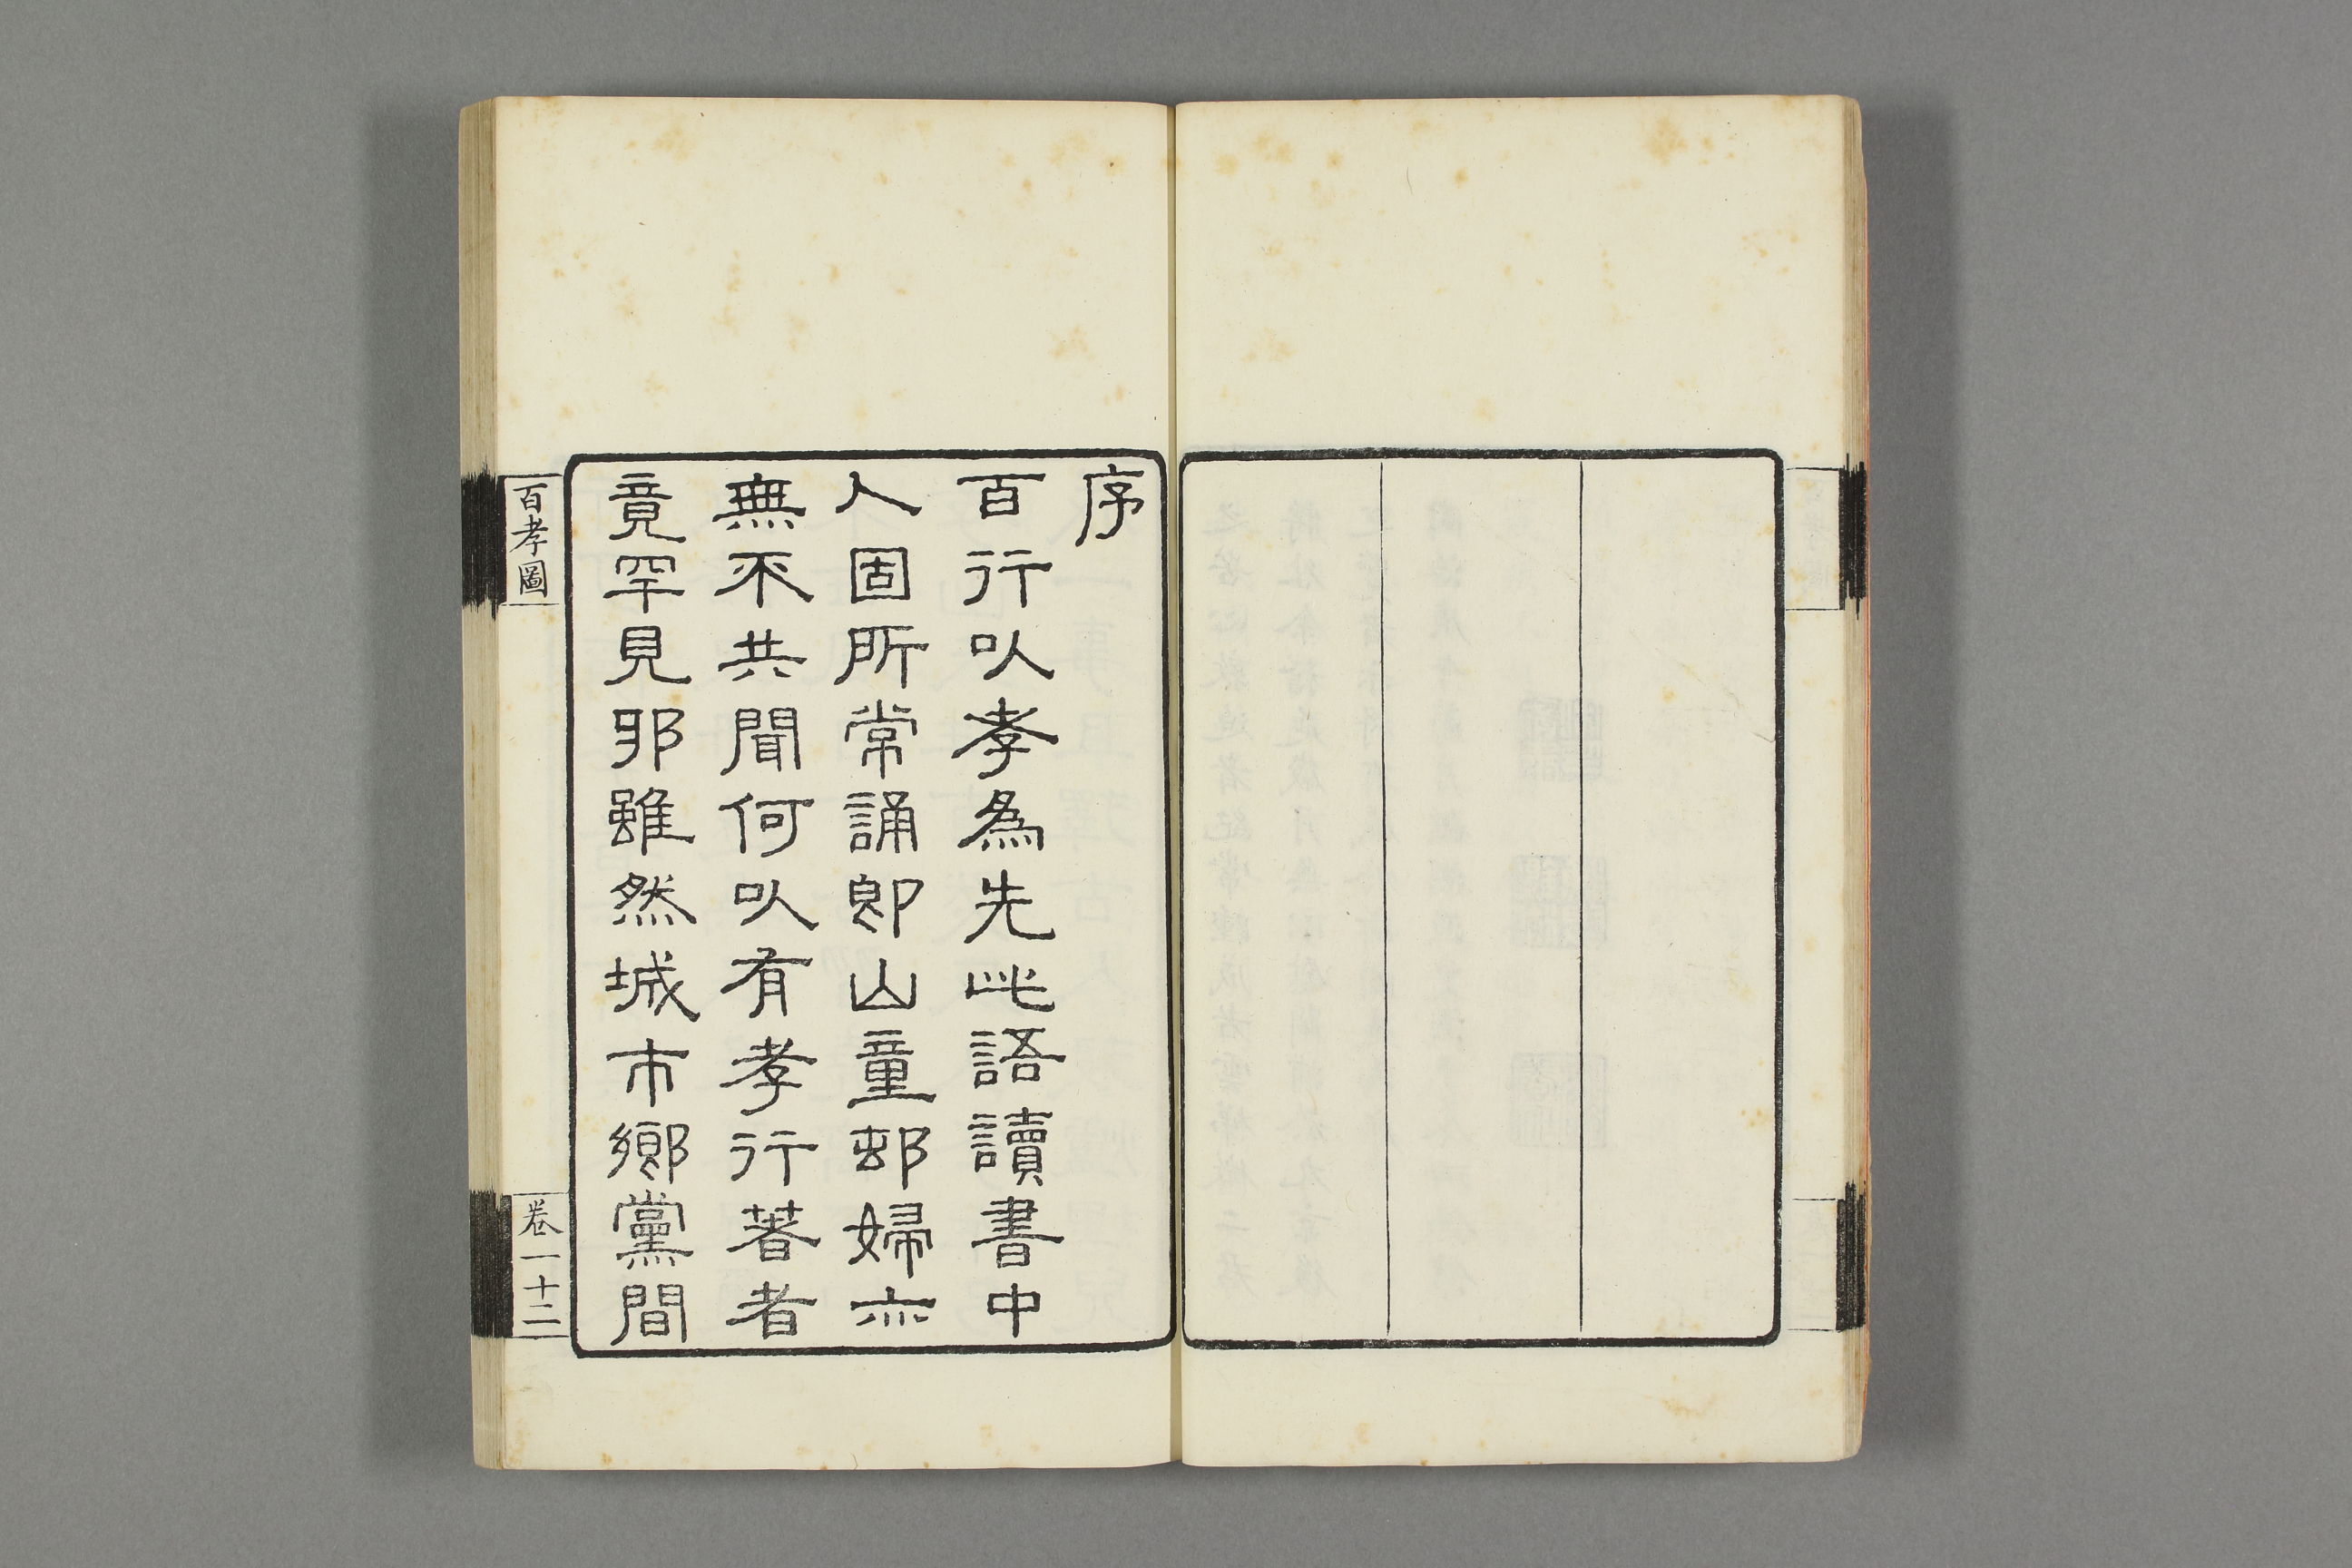 序
百行以孝為先此語讀書中
人固所常誦即山童邨婦亦
無不共聞何以有孝行著者
竟罕見邪雖然城市鄉黨間
百孝圖
卷一
十二